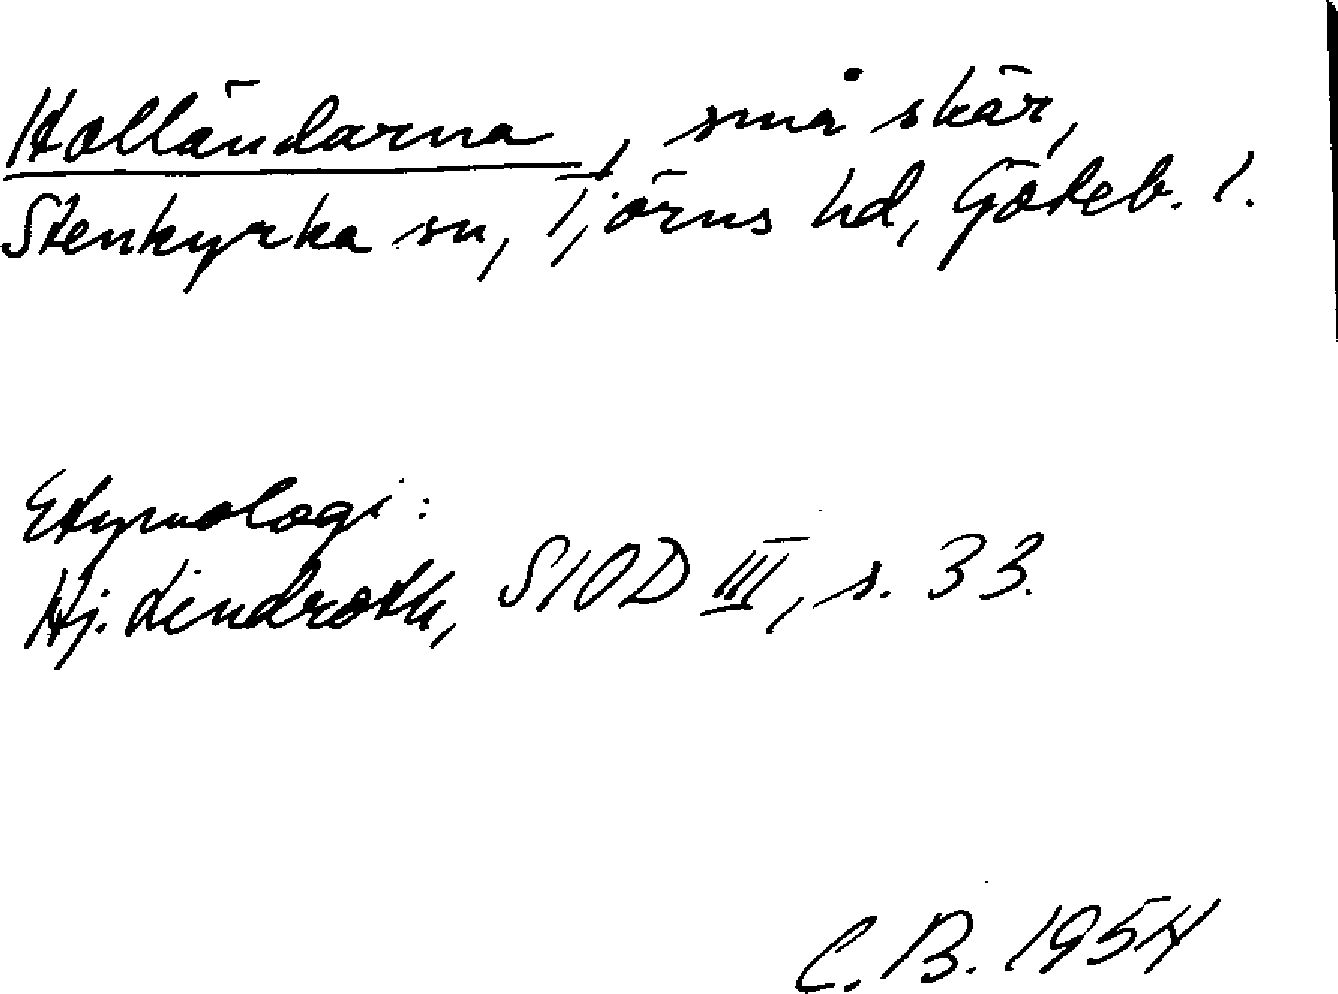 Holländarna, små skär,
Stenkyrka sn, Tjörns hd, Göteb. l.
Etymologi:
Hj. Lindroth, SIOD III, s. 33.
C. B. 1954